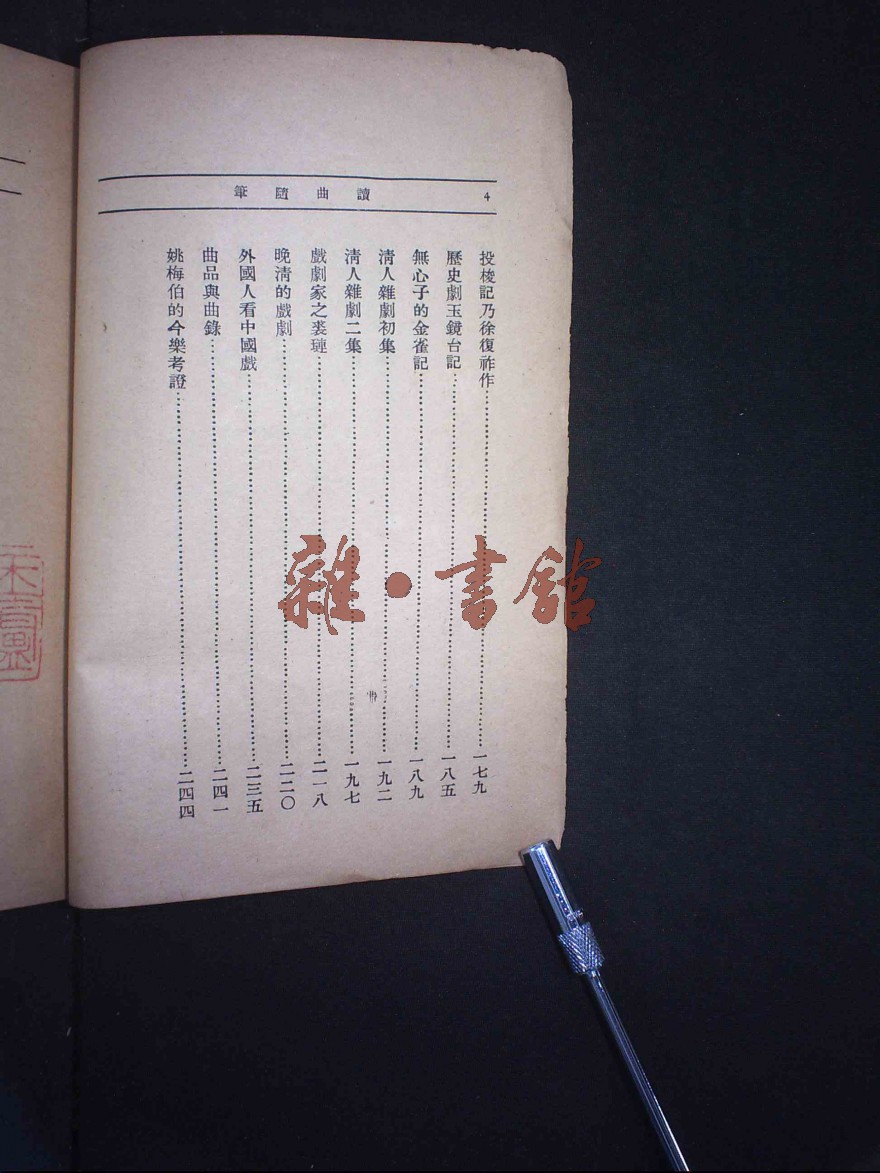 讀曲隨筆
4
投梭記乃徐復祚作……一七九
歷史劇玉鏡台記……一八五
無心子的金雀記……一八九
清人雜劇初集……一九二
清人雜劇二集……一九七
戲劇家之裘璉……二一八
晚清的戲劇……二二〇
外國人看中國戲……二三五
曲品與曲錄……二四一
姚梅伯的今樂考證……二四四
雜·書館